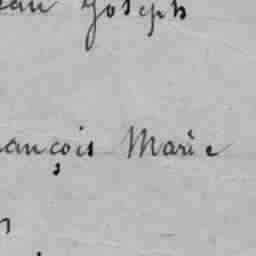 ean Joseph
ançois Marie